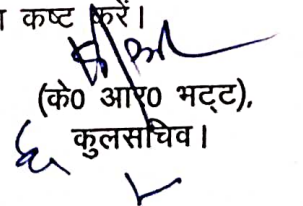 कष्ट करें।
(के0 आर0 भट्ट),
कुलसचिव।